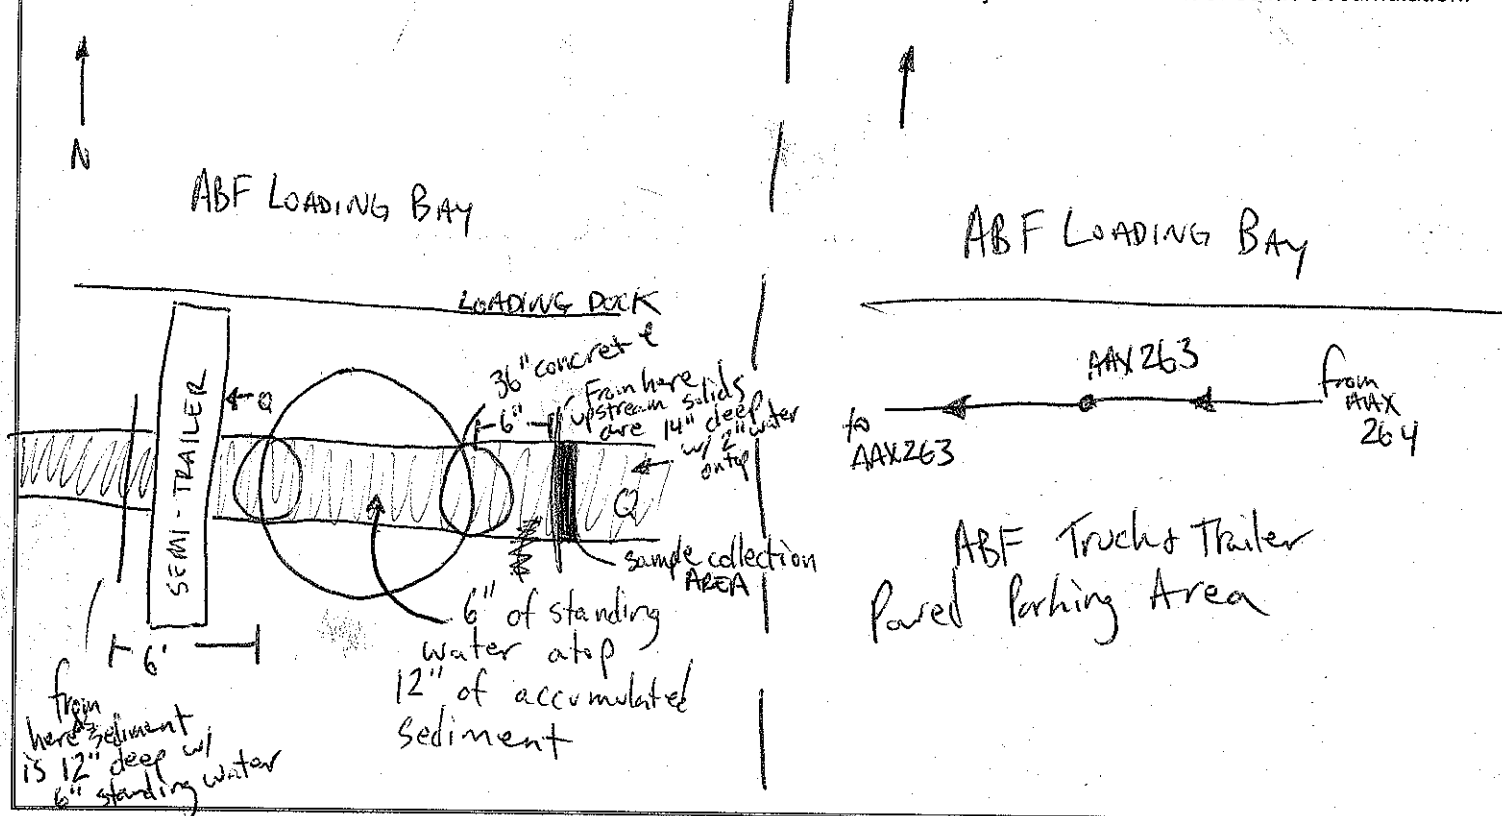 N
ABF LOADING BAY
LOADING DOCK
36" concrete
6"
From here
upstream solids
are 14" deep
w/ 2" water
on top
Q
SEMI-TRAILER
Q
sample collection
AREA
6" of standing
water atop
12" of accumulated
sediment
6'
from
here sediment
is 12" deep w/
6" standing water
ABF LOADING BAY
AAX263
from
AAX
264
to
AAX263
ABF Truck & Trailer
Paved Parking Area